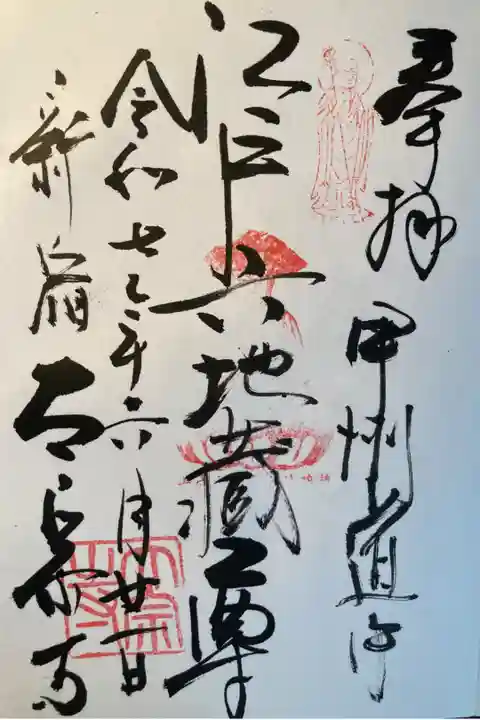 奉拝 甲州道中
江戸六地蔵尊
令和七年六月廿一日
新宿 太宗寺